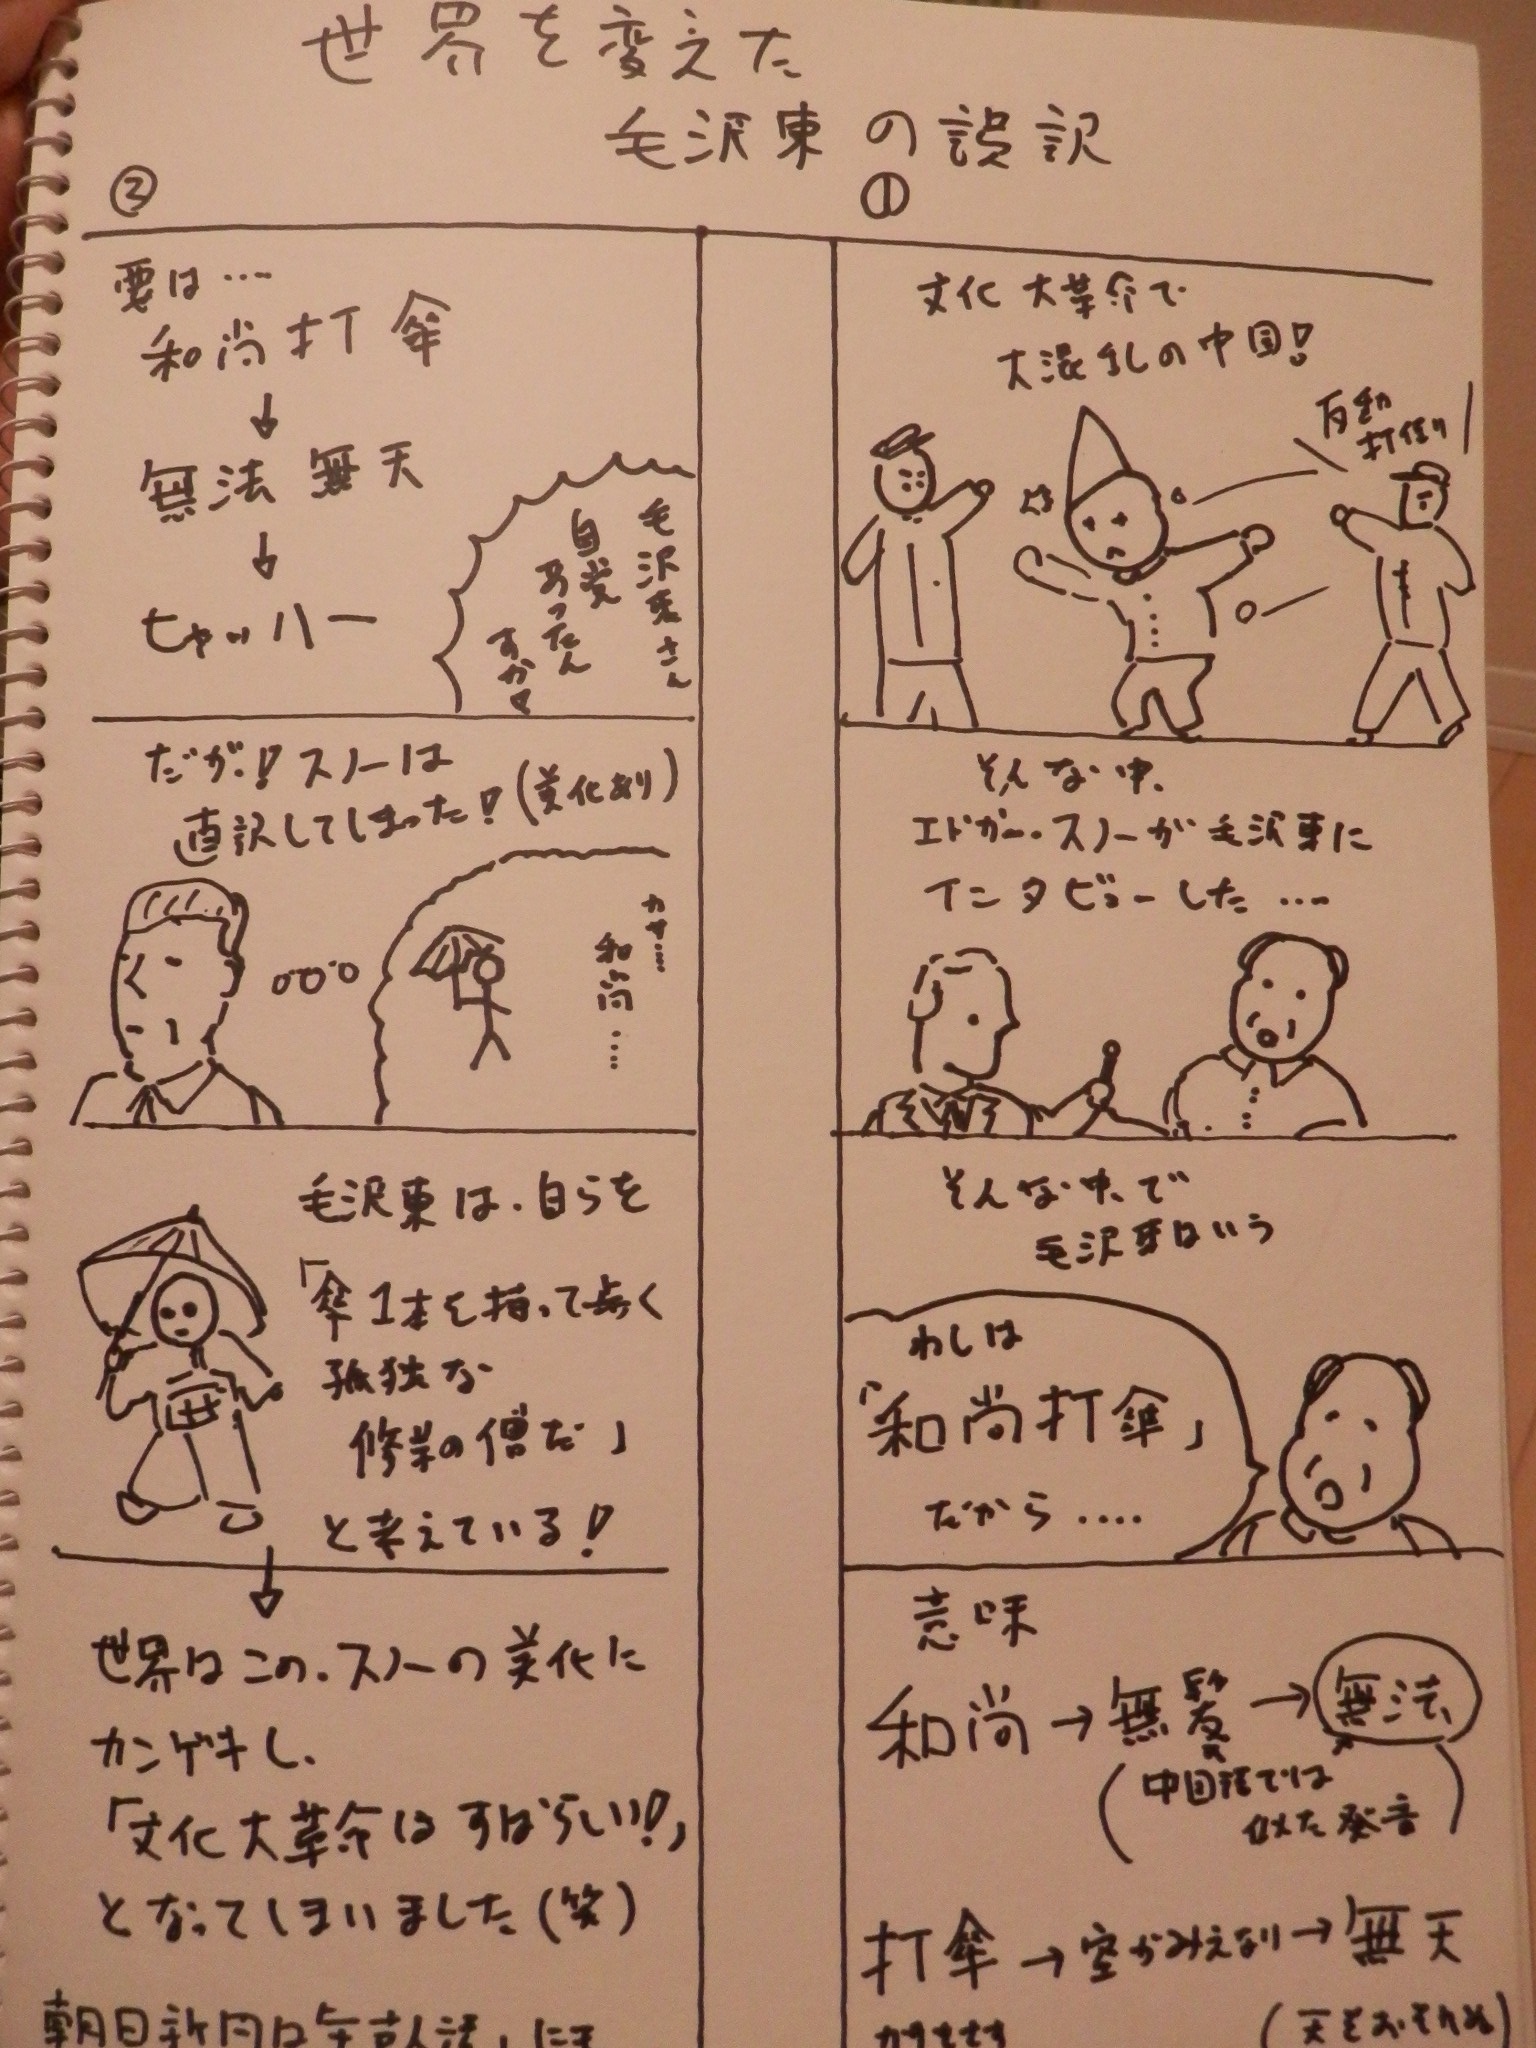 世界を変えた
毛沢東の誤訳
①
文化大革命で
大混乱の中国!
反動
打倒
そんな中、
エドガー・スノーが毛沢東に
インタビューした…
そんな中で
毛沢東はいう
わしは
「和尚打傘」
だから‥‥
意味
和尚→無髪→無法
(中国語では
似た発音)
打傘→空がみえない→無天
(天をおそれぬ)
②
要は…
和尚打傘
↓
無法無天
↓
ヒャッハー
毛沢東さん
自覚
あったん
すか
だが!スノーは
直訳してしまった!(美化あり)
カサ……
和尚……
毛沢東は、自らを
「傘1本を持って歩く
孤独な
修業の僧だ」
と考えている!
↓
世界はこの、スノーの美化に
カンゲキし、
「文化大革命はすばらしい!」
となってしまいました(笑)
朝日新聞